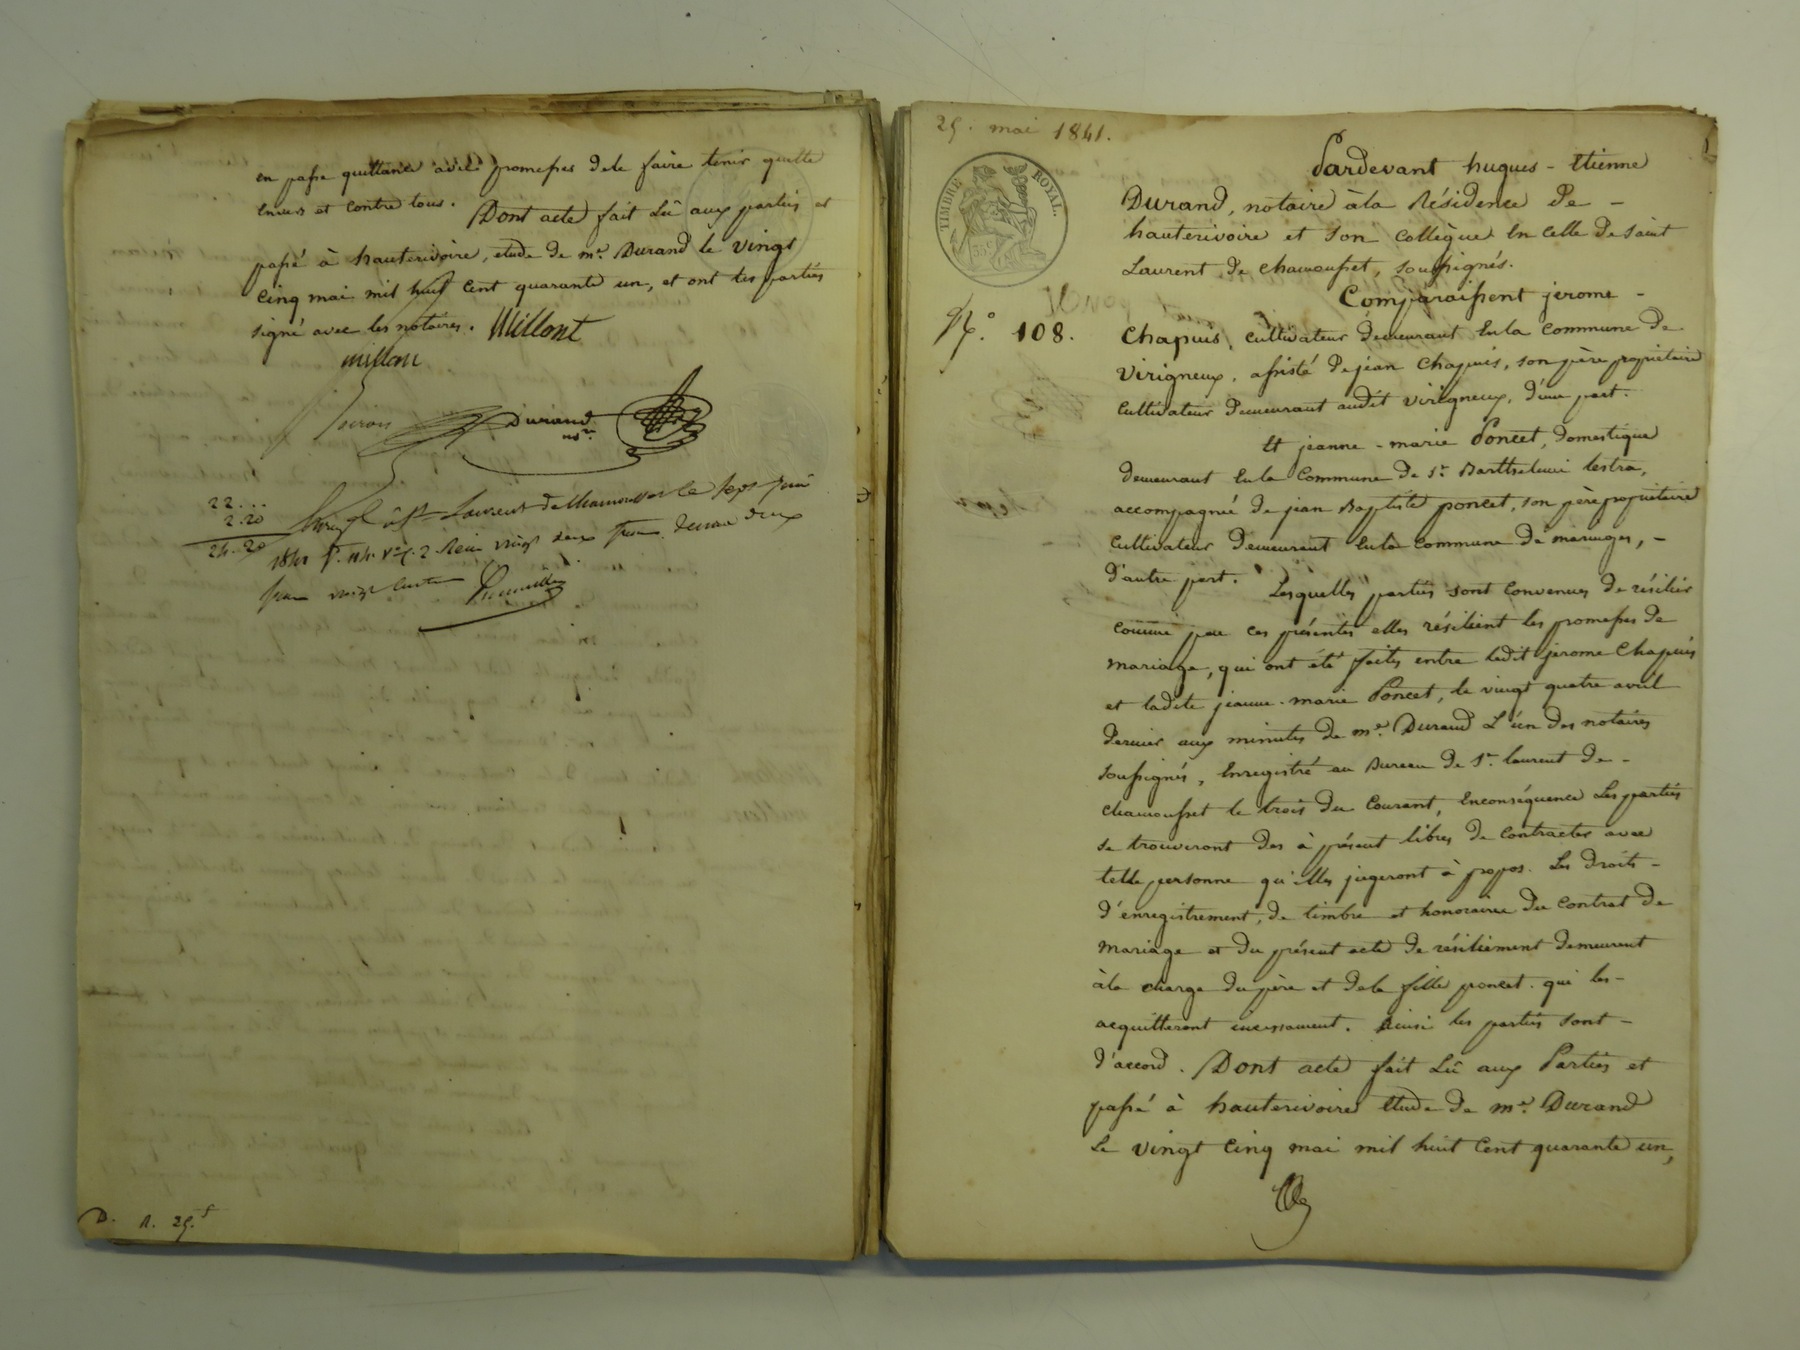 en passe quittance avec promesses de le faire tenir quitte
envers et contre tous. Dont acte fait Lû aux parties et
passé à hauterivoire, etude de me. Durand le vingt
cinq mai mil huit cent quarante un, et ont les parties
signé avec les notaires. Millont
millon
Durand
nre
22...
2.20
24.20
à St Laurent de Chamousset le sept juin
1841 f. vingt deux francs deux
francs vingt centimes
D. R. 25.f
25. mai 1841.
TIMBRE ROYAL.
N.o 108.
Pardevant hugues - Etienne
Durand, notaire à la Résidence De -
hauterivoire et son collègue En celle De saint
Laurent de chamousset, soussignés.
Comparaissent jerome -
Chapuis, cultivateur demeurant En la commune De
Virigneux, assisté De jean Chapuis, son père propriétaire
cultivateur Demeurant audit virigneux, D'une part.
Et jeanne - marie Poncet, Domestique
demeurant En la commune De St. Barthelemi lestra,
accompagnée de jean Baptiste poncet, son père propriétaire
cultivateur Demeurant En la commune De maringes, -
D'autre part. Lesquelles parties sont convenues De résilier
comme par ces présentes elles résilient les promesses De
mariage, qui ont été faites entre ledit jerome Chapuis
et ladite jeanne-marie Poncet, le vingt quatre avril
Dernier aux minutes De me. Durand L'un des notaires
soussignés, Enregistré au Bureau De St. laurent De -
chamousset le trois du Courant, Enconséquence Les parties
se trouveront des à présent libres De contracter avec
telle personne qu'elles jugeront à propos. Les Droits -
D'enregistrement, De timbre et honoraires Du Contrat De
mariage et Du présent acte De résiliement Demeurent
à la charge Du père et De la fille poncet. qui les -
acquitteront incessament. Ainsi les parties sont -
D'accord. Dont acte fait Lû aux Parties et
passé à hauterivoire Etude De me. Durand
Le vingt cinq mai mil huit Cent quarante un,